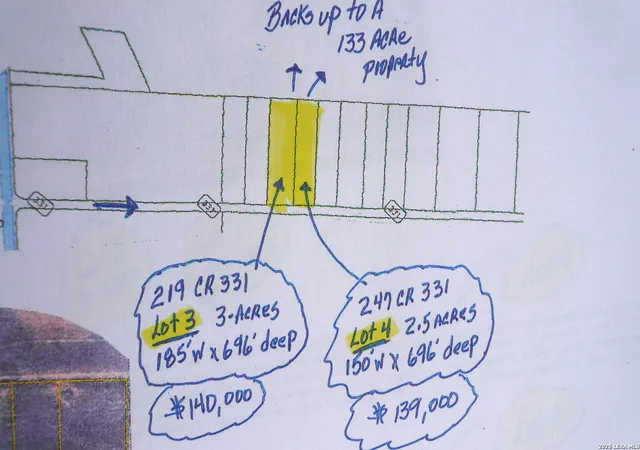 Backs up to A
133 Acre
property
331
331
331
219 CR 331
Lot 3 3-Acres
185'W x 696' deep
$140,000
247 CR 331
Lot 4 2.5 Acres
150'W x 696' deep
$139,000